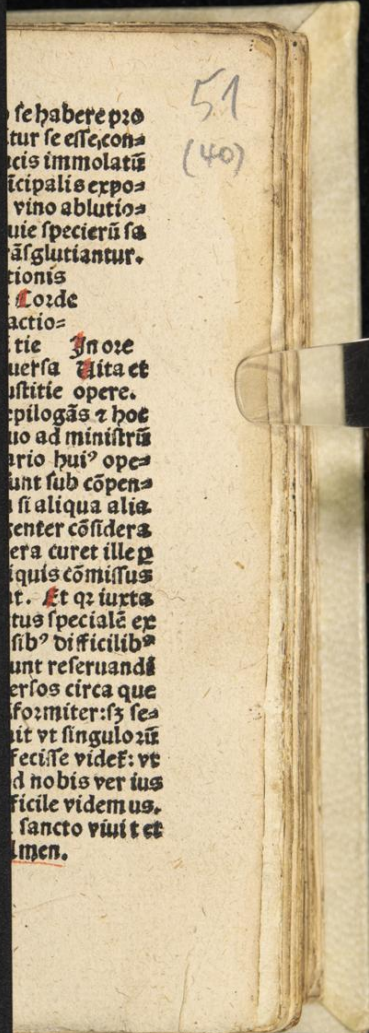 51
(40)
ſe habere pro
tur ſe eſſe,con⸗
cis immolatū
icipalis expo⸗
vino ablutio⸗
uie ſpecierū ſa
rāſglutiantur.
tionis
Corde
actio⸗
tie In ore
uerſa Uita et
uſtitie opere.
epilogās ⁊ hoc
uo ad miniſtrū
ario huiꝰ ope⸗
unt ſub cōpen⸗
ſi aliqua alia
center cōſidera
era curet ille ꝑ
iquis cōmiſſus
t. Et qꝛ iuxta
tus ſpecialē ex
ſibꝰ difficilibꝰ
unt reſeruandi
erſos circa que
formiter:ſꝫ ſe⸗
it vt ſingulorū
feciſſe videt̄: vt
d nobis ver ius
ficile videm us.
ſancto viui t et
Amen.